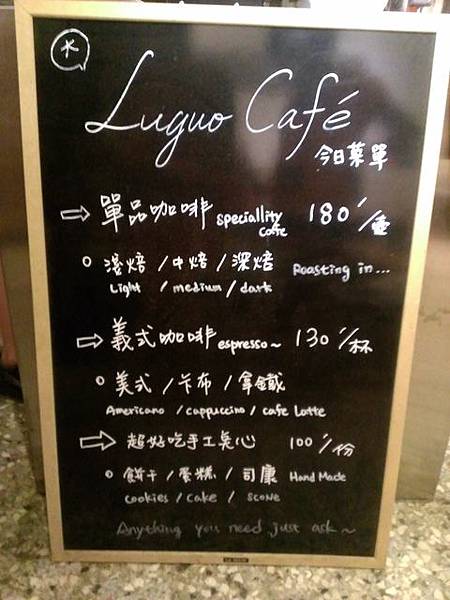 木
Luguo Café
今日菜單
單品咖啡 speciallity caffe 180/壺
淺焙/中焙/深焙 Roasting in...
Light / medium / dark
義式咖啡 espresso~ 130/杯
美式/卡布/拿鐵
Americano / cappuccino / cafe Latte
超好吃手工點心 100/份
餅干/蛋糕/司康 Hand Made
cookies / cake / scone
Anything you need just ask~